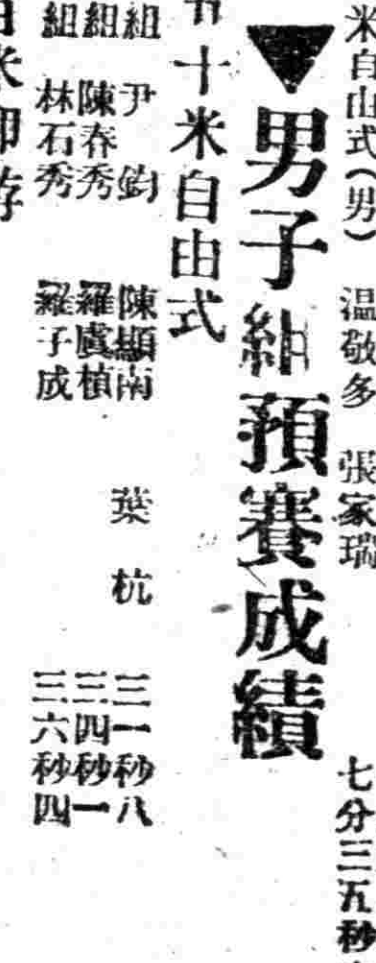 米自由式(男) 温敬多 張家瑞 七分三五秒
▼男子組預賽成績
五十米自由式
組 尹鈞 陳顯南 葉杭 三一秒八
組 陳春秀 羅虞楨 三四秒一
組 林石秀 羅子成 三六秒四